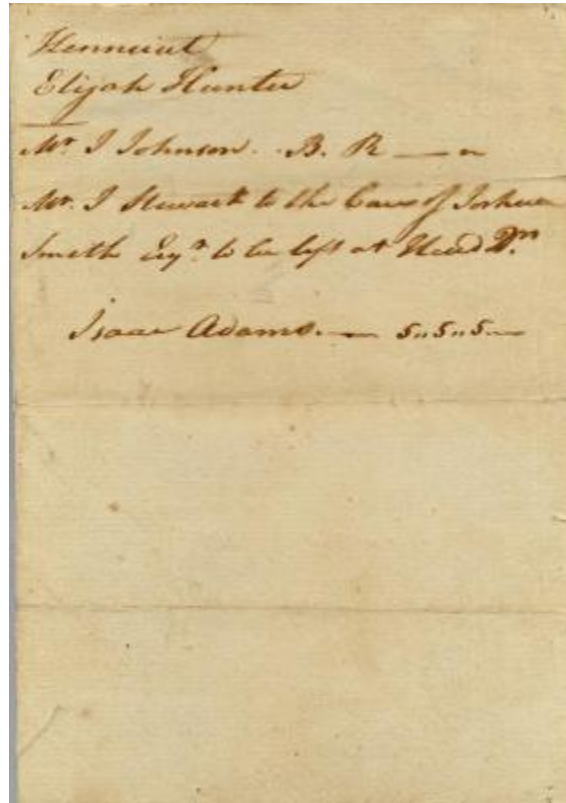 Elijah Hunter
Mr. I Johnson. B. R
Mr. I Stewart to the Care of Joshua
Smith Esqr. to be left at Head Qrs
Isaac Adams. 5,,5,,5